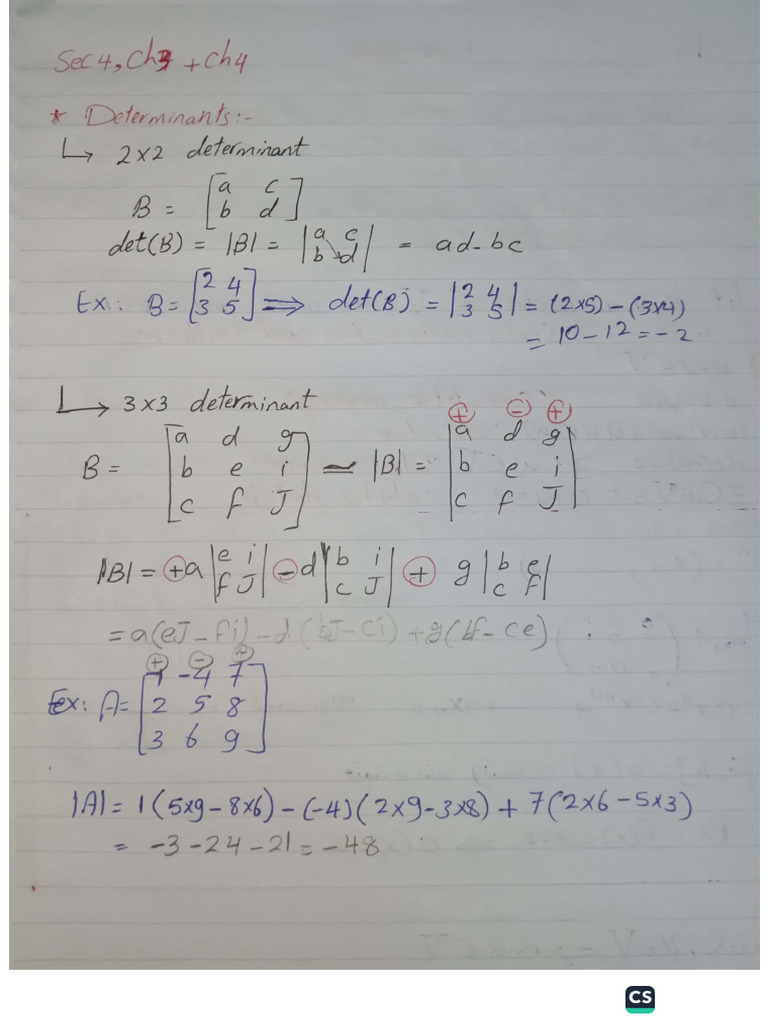 Sec 4, Ch3 + Ch4
* Determinants:-
↳ 2×2 determinant
B = [a c
b d]
det(B) = |B| = |a c
b d| = ad - bc
Ex: B = [2 4
3 5] ⟹ det(B) = |2 4
3 5| = (2×5) - (3×4)
= 10 - 12 = - 2
↳ 3×3 determinant
⊕ ⊖ ⊕
B = [a d g
b e i
c f J] ⇒ |B| = |a d g
b e i
c f J|
|B| = ⊕ a |e i
f J| ⊖ d |b i
c J| ⊕ g |b e
c F|
= a(eJ - fi) - d (bJ - ci) + g(bf - ce)
⊕ ⊖ ⊕
Ex: A = [1 -4 7
2 5 8
3 6 9]
|A| = 1(5×9 - 8×6) - (-4)(2×9 - 3×8) + 7(2×6 - 5×3)
= -3 - 24 - 21 = -48
CS